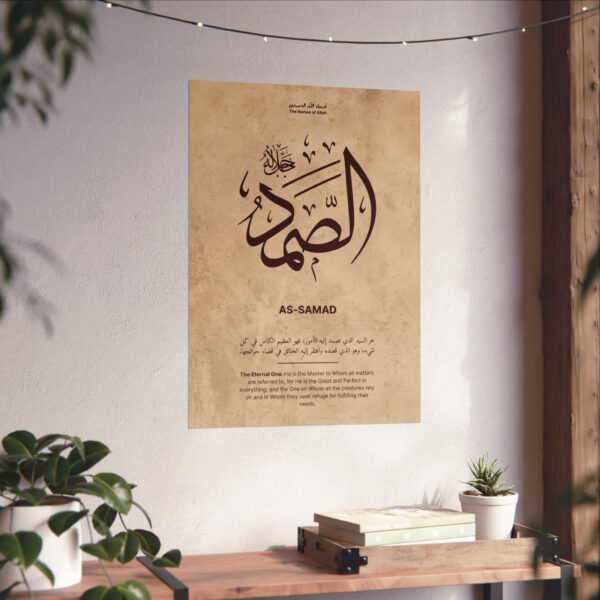 أسماء الله الحسنى
The Names of Allah
جل جلاله
الصمد
AS-SAMAD
هو السيد الذي يصمد إليه الأمور، فهو العظيم الكامل في كل
شيء، وهو الذي قصده وافتقر إليه الخلائق في قضاء حوائجها.
The Eternal One: He is the Master to Whom all matters
are referred to, for He is the Great and Perfect in
everything, and the One on Whom all the creatures rely
on and in Whom they seek refuge for fulfilling their
needs.
HOME